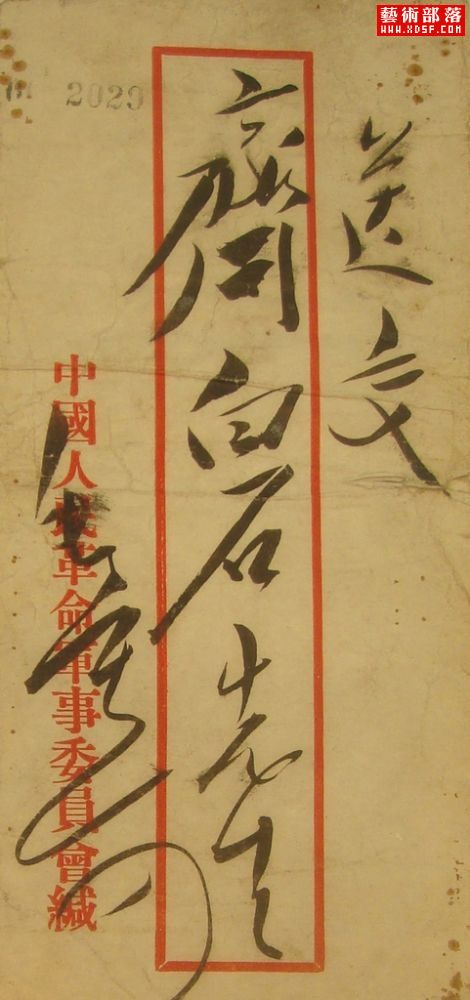 藝術部落
WWW.XDSF.COM
2029
送交
齊白石先生
中國人民革命軍事委員會緘